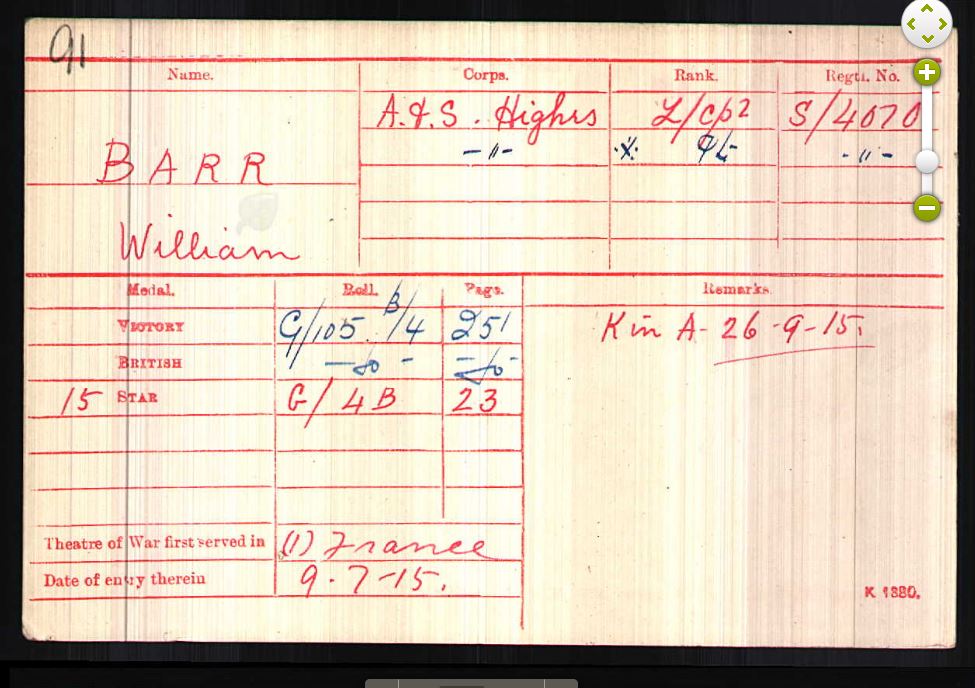 91
Name. Corps. Rank. Regtl. No.
A.&S. Highrs L/Cpl S/4070
BARR -"- X Pte -"-
William
Medal. Roll. Page. Remarks.
VICTORY G/105 B/4 251 K in A- 26-9-15.
BRITISH —do- —do-
15 STAR G/4B 23
Theatre of War first served in (1) France
Date of entry therein 9-7-15.
K 1380.